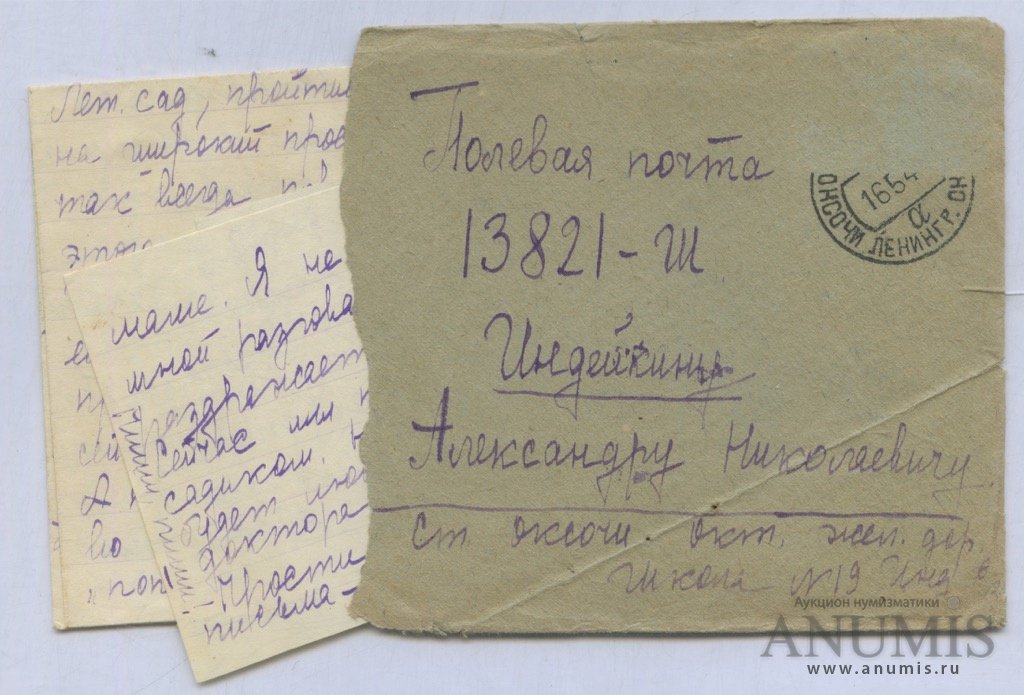 Лет. сад, пройти
на широкий
так всегда
маме. Я не
мной разгова
раздражает
Сейчас мы
садиком.
будет
доктора
Прости
письма-
Полевая почта
13821-Ш
Индейкину
Александру Николаевичу
ст. Оксочи окт. жел. дор.
Школа N19 Инд
1654
а
ОКСОЧИ ЛЕНИНГР. ОК
Аукцион нумизматики
ANUMIS
www.anumis.ru